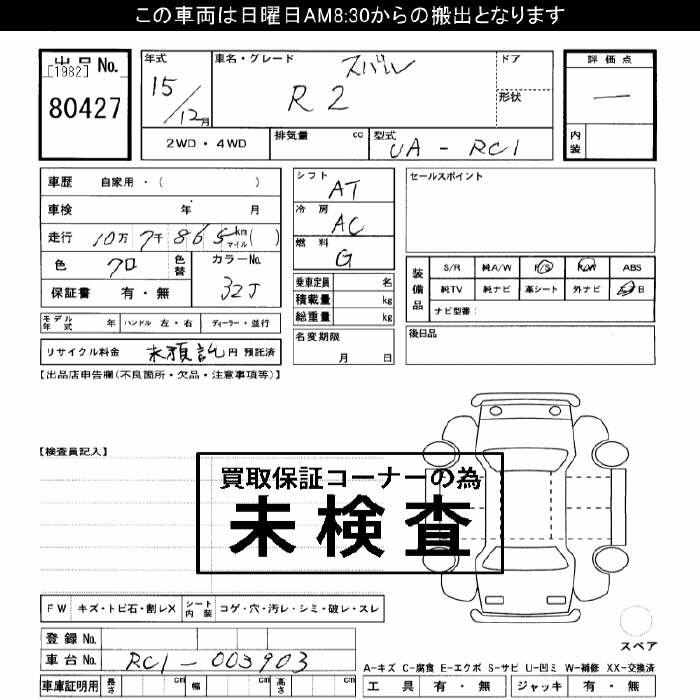 この車両は日曜日AM8:30からの搬出となります
出品 No.
[1982]
80427
年式
15/12月
車名・グレード
スバル
R2
ドア
形状
評価点
—
内装
2WD・4WD
排気量 cc
型式
UA-RC1
車歴 自家用・( )
車検 年 月
走行 10万 7千 865 km マイル ( )
色 クロ
色替
カラーNo.
32J
保証書 有・無
シフト
AT
冷房
AC
燃料
G
セールスポイント
装備品
S/R 純A/W P/S P/W ABS
純TV 純ナビ 革シート 外ナビ
ナビ型番:
乗車定員 名
積載量 kg
総重量 kg
モデル年式 年 ハンドル 左・右 ディーラー・並行
名変期限
月 日
後日品
リサイクル料金 未預託 円 預託済
【出品店申告欄(不良箇所・欠品・注意事項等)】
【検査員記入】
買取保証コーナーの為
未検査
FW キズ・トビ石・割レX シート内装 コゲ・穴・汚レ・シミ・破レ・スレ
スペア
登録 No.
車台 No. RC1-003903
A-キズ C-腐食 E-エクボ S-サビ U-凹ミ W-補修 XX-交換済
車庫証明用 長さ cm 幅 cm 高さ cm
工具 有・無 ジャッキ 有・無